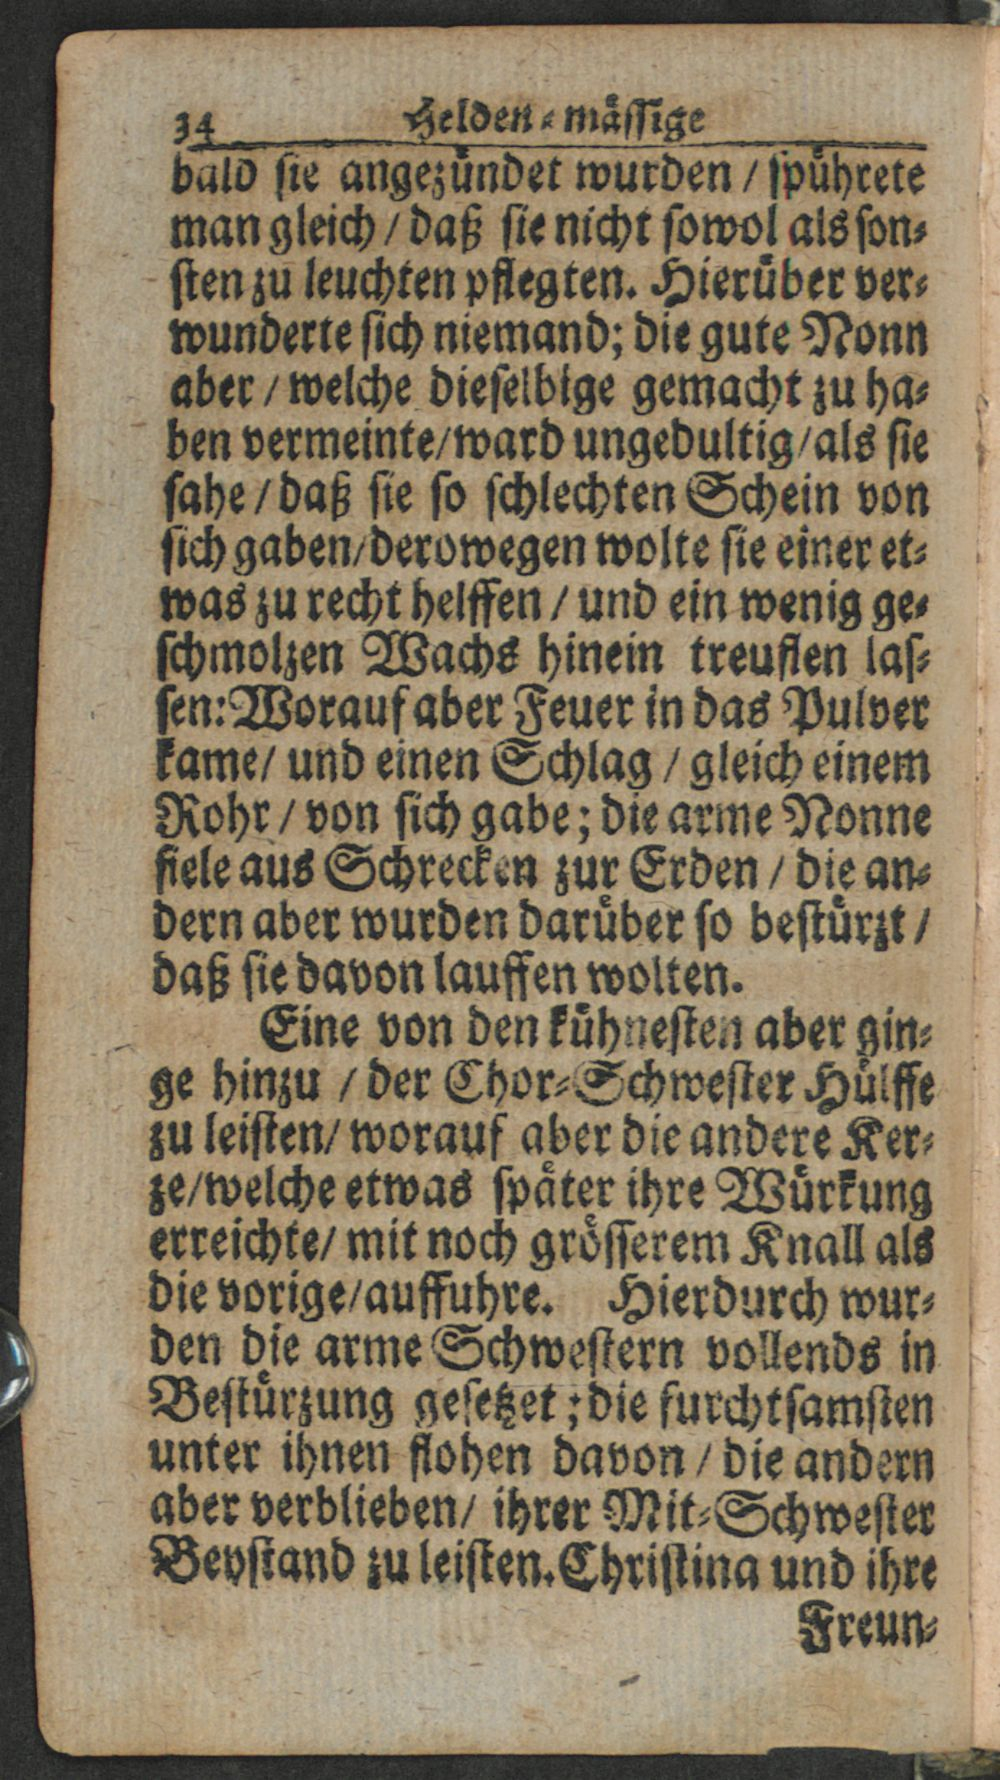 34 Helden-mässige
bald sie angezündet wurden / spührete
man gleich / daß sie nicht sowol als son-
sten zu leuchten pflegten. Hierüber ver-
wunderte sich niemand; die gute Nonn
aber / welche dieselbige gemacht zu ha-
ben vermeinte/ward ungedultig/als sie
sahe / daß sie so schlechten Schein von
sich gaben/derowegen wolte sie einer et-
was zu recht helffen / und ein wenig ge-
schmolzen Wachs hinein treuflen las-
sen: Worauf aber Feuer in das Pulver
kame/ und einen Schlag / gleich einem
Rohr / von sich gabe; die arme Nonne
fiele aus Schrecken zur Erden / die an-
dern aber wurden darüber so bestürzt /
daß sie davon lauffen wolten.
Eine von den kühnesten aber gin-
ge hinzu / der Chor-Schwester Hülffe
zu leisten/ worauf aber die andere Ker-
ze/welche etwas später ihre Würkung
erreichte/ mit noch grösserem Knall als
die vorige/auffuhre. Hierdurch wur-
den die arme Schwestern vollends in
Bestürzung gesetzet; die furchtsamsten
unter ihnen flohen davon / die andern
aber verblieben/ ihrer Mit-Schwester
Beystand zu leisten. Christina und ihre
Freun-